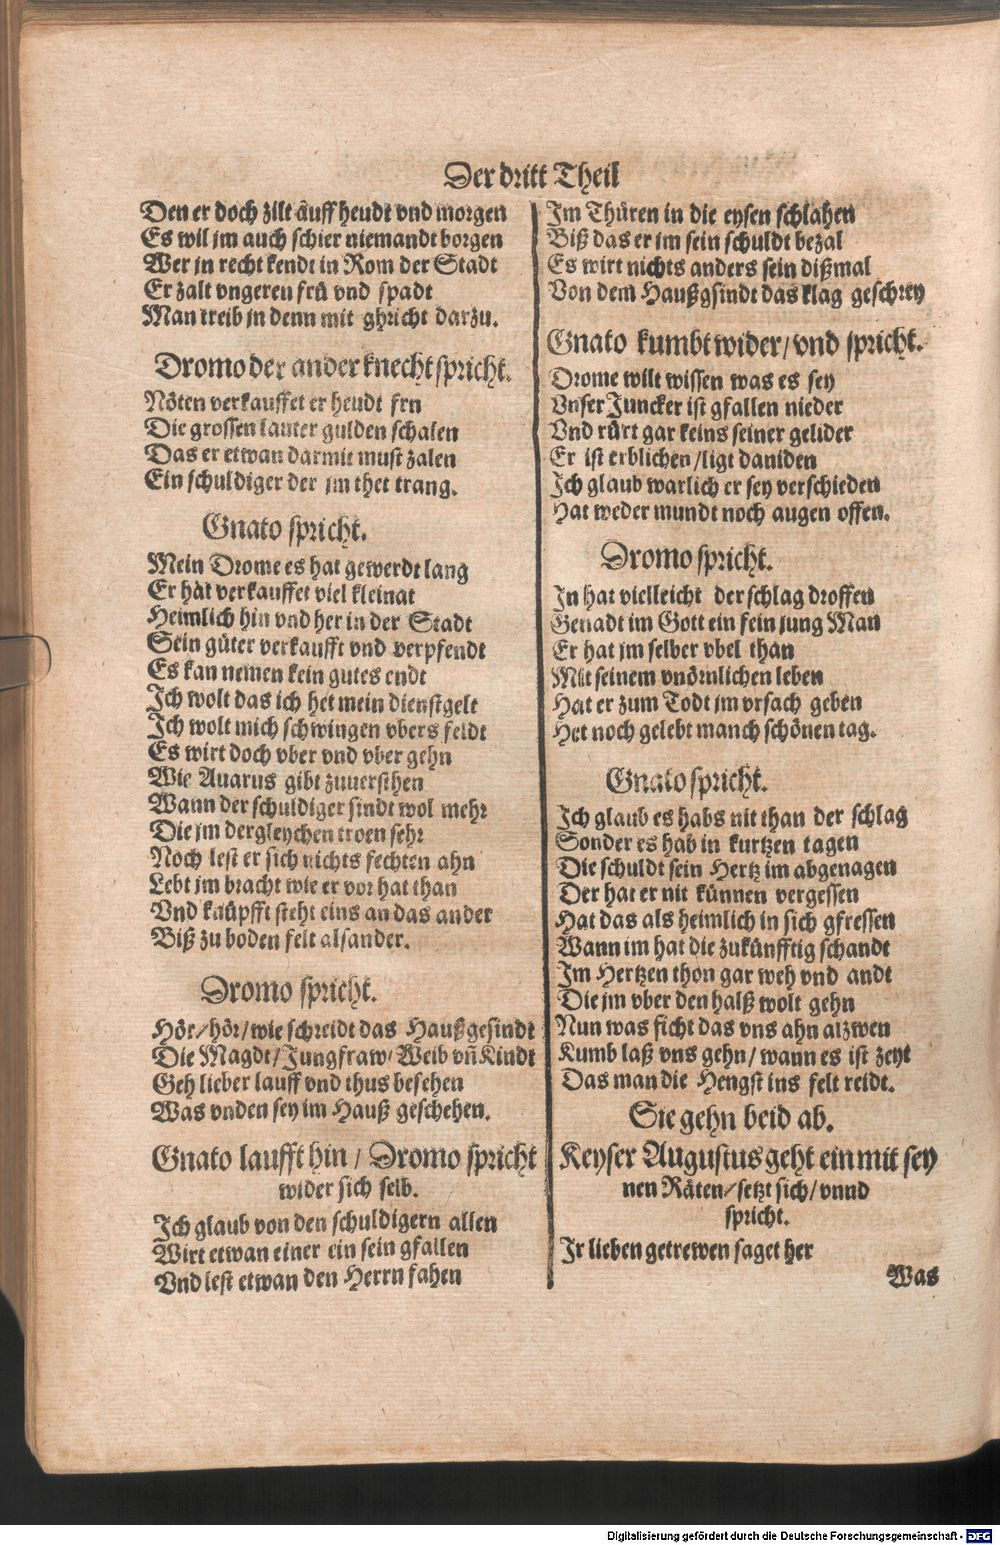 Der dritt Theil
Den er doch zilt auff heudt vnd morgen
Es wil jm auch schier niemandt borgen
Wer jn recht kendt in Rom der Stadt
Er zalt vngeren frü vnd spadt
Man treib jn denn mit ghricht darzu.
Dromo der ander knecht spricht.
Nöten verkauffet er heudt frü
Die grossen lauter gulden schalen
Das er etwan darmit must zalen
Ein schuldiger der jm thet trang.
Gnato spricht.
Mein Drome es hat gewerdt lang
Er hat verkauffet viel kleinat
Heimlich hin vnd her in der Stadt
Sein güter verkaufft vnd verpfendt
Es kan nemen kein gutes endt
Ich wolt das ich het mein dienstgelt
Ich wolt mich schwingen vbers feldt
Es wirt doch vber vnd vber gehn
Wie Auarus gibt zuuersthen
Wann der schuldiger sindt wol mehr
Die jm dergleychen troen sehr
Noch lest er sich nichts fechten ahn
Lebt jm bracht wie er vor hat than
Vnd knüpfft steht eins an das ander
Biß zu boden felt alsander.
Dromo spricht.
Hör/hör/wie schreidt das Haußgesindt
Die Magdt/Jungfraw/Weib vn̄ Kindt
Geh lieber lauff vnd thus besehen
Was vnden sey im Hauß geschehen.
Gnato laufft hin / Dromo spricht
wider sich selb.
Ich glaub von den schuldigern allen
Wirt etwan einer ein sein gfallen
Vnd lest etwan den Herrn fahen
Im Thüren in die eysen schlahen
Biß das er im sein schuldt bezal
Es wirt nichts anders sein dißmal
Von dem Haußgsindt das klag geschrey
Gnato kumbt wider/vnd spricht.
Drome wilt wissen was es sey
Vnser Juncker ist gfallen nieder
Vnd rürt gar keins seiner gelider
Er ist erblichen/ligt daniden
Ich glaub warlich er sey verschieden
Hat weder mundt noch augen offen.
Dromo spricht.
In hat vielleicht der schlag droffen
Genadt im Gott ein fein jung Man
Er hat jm selber vbel than
Mit seinem vnörnlichen leben
Hat er zum Todt jm vrsach geben
Het noch gelebt manch schönen tag.
Gnato spricht.
Ich glaub es habs nit than der schlag
Sonder es hab in kurtzen tagen
Die schuldt sein Hertz im abgenagen
Der hat er nit künnen vergessen
Hat das als heimlich in sich gfressen
Wann im hat die zukünfftig schandt
Im Hertzen thon gar weh vnd andt
Die jm vber den halß wolt gehn
Nun was ficht das vns ahn alzwen
Kumb laß vns gehn/wann es ist zeyt
Das man die Hengst ins felt reidt.
Sie gehn beid ab.
Keyser Augustus geht ein mit sey
nen Räten/setzt sich/vnnd
spricht.
Ir lieben getrewen saget her
Was
Digitalisierung gefördert durch die Deutsche Forschungsgemeinschaft - DFG